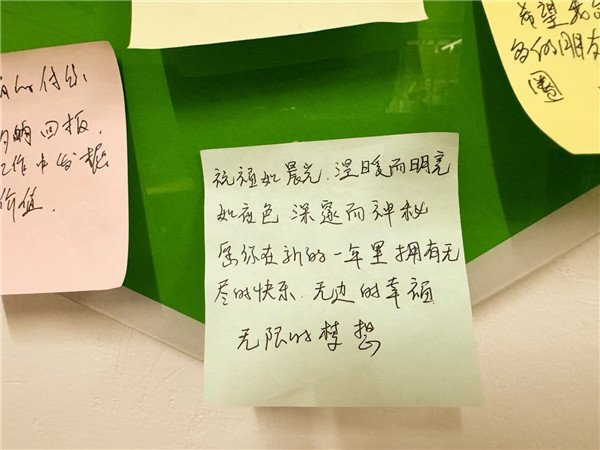 的付出
的回报,
工作中发挥
价值.
祝福如晨光,温暖而明亮
如夜色 深邃而神秘
愿你在新的一年里拥有无
尽的快乐,无边的幸福
无限的梦想
希望我
的朋友
圈